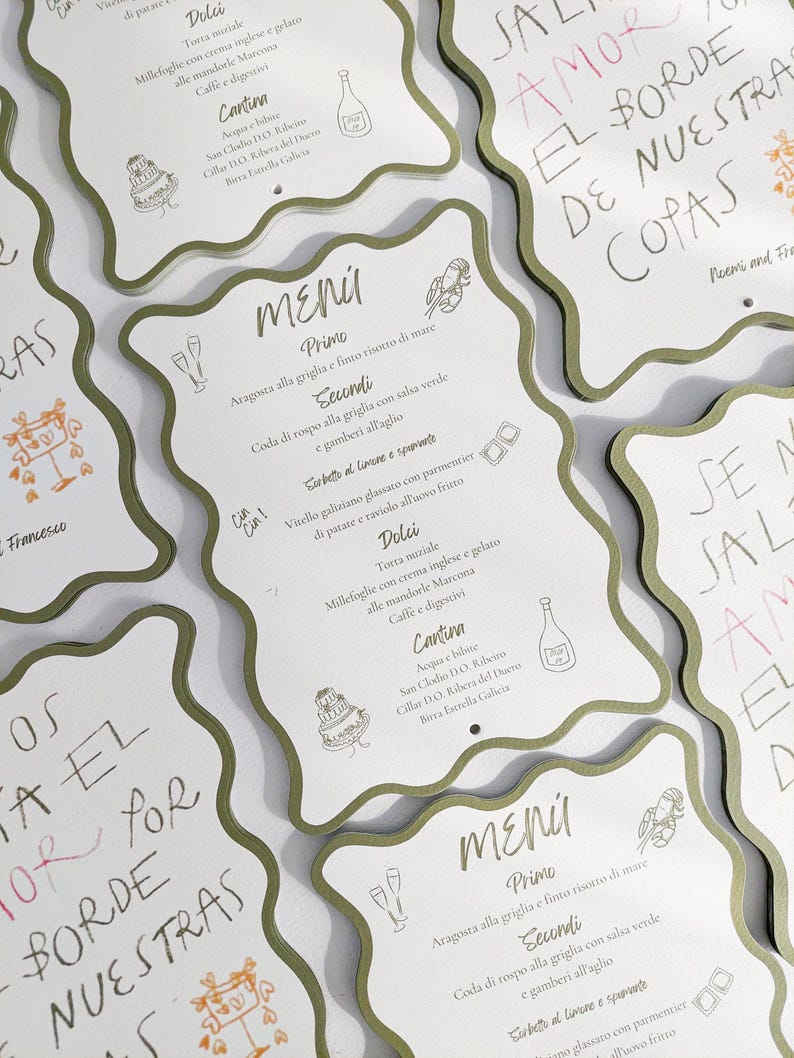 Dolci
Torta nuziale
Millefoglie con crema inglese e gelato
alle mandorle Marcona
Caffè e digestivi
Cantina
Acqua e bibite
San Clodio D.O. Ribeiro
Cillar D.O. Ribera del Duero
Birra Estrella Galicia
AMOR
EL BORDE
DE NUESTRAS
COPAS
Noemi and Fra
RAS
Francesco
MENÚ
Primo
Aragosta alla griglia e finto risotto di mare
Secondi
Coda di rospo alla griglia con salsa verde
e gamberi all'aglio
Sorbetto al limone e spumante
Vitello galiziano glassato con parmentier
di patate e raviolo all'uovo fritto
Cin
Cin!
Dolci
Torta nuziale
Millefoglie con crema inglese e gelato
alle mandorle Marcona
Caffè e digestivi
Cantina
Acqua e bibite
San Clodio D.O. Ribeiro
Cillar D.O. Ribera del Duero
Birra Estrella Galicia
SE N
SAL
AM
EL
D
OS
ÍA EL
OR POR
BORDE
NUESTRAS
AS
MENÚ
Primo
Aragosta alla griglia e finto risotto di mare
Secondi
Coda di rospo alla griglia con salsa verde
e gamberi all'aglio
Sorbetto al limone e spumante
Vitello galiziano glassato con parmentier
di patate e raviolo all'uovo fritto